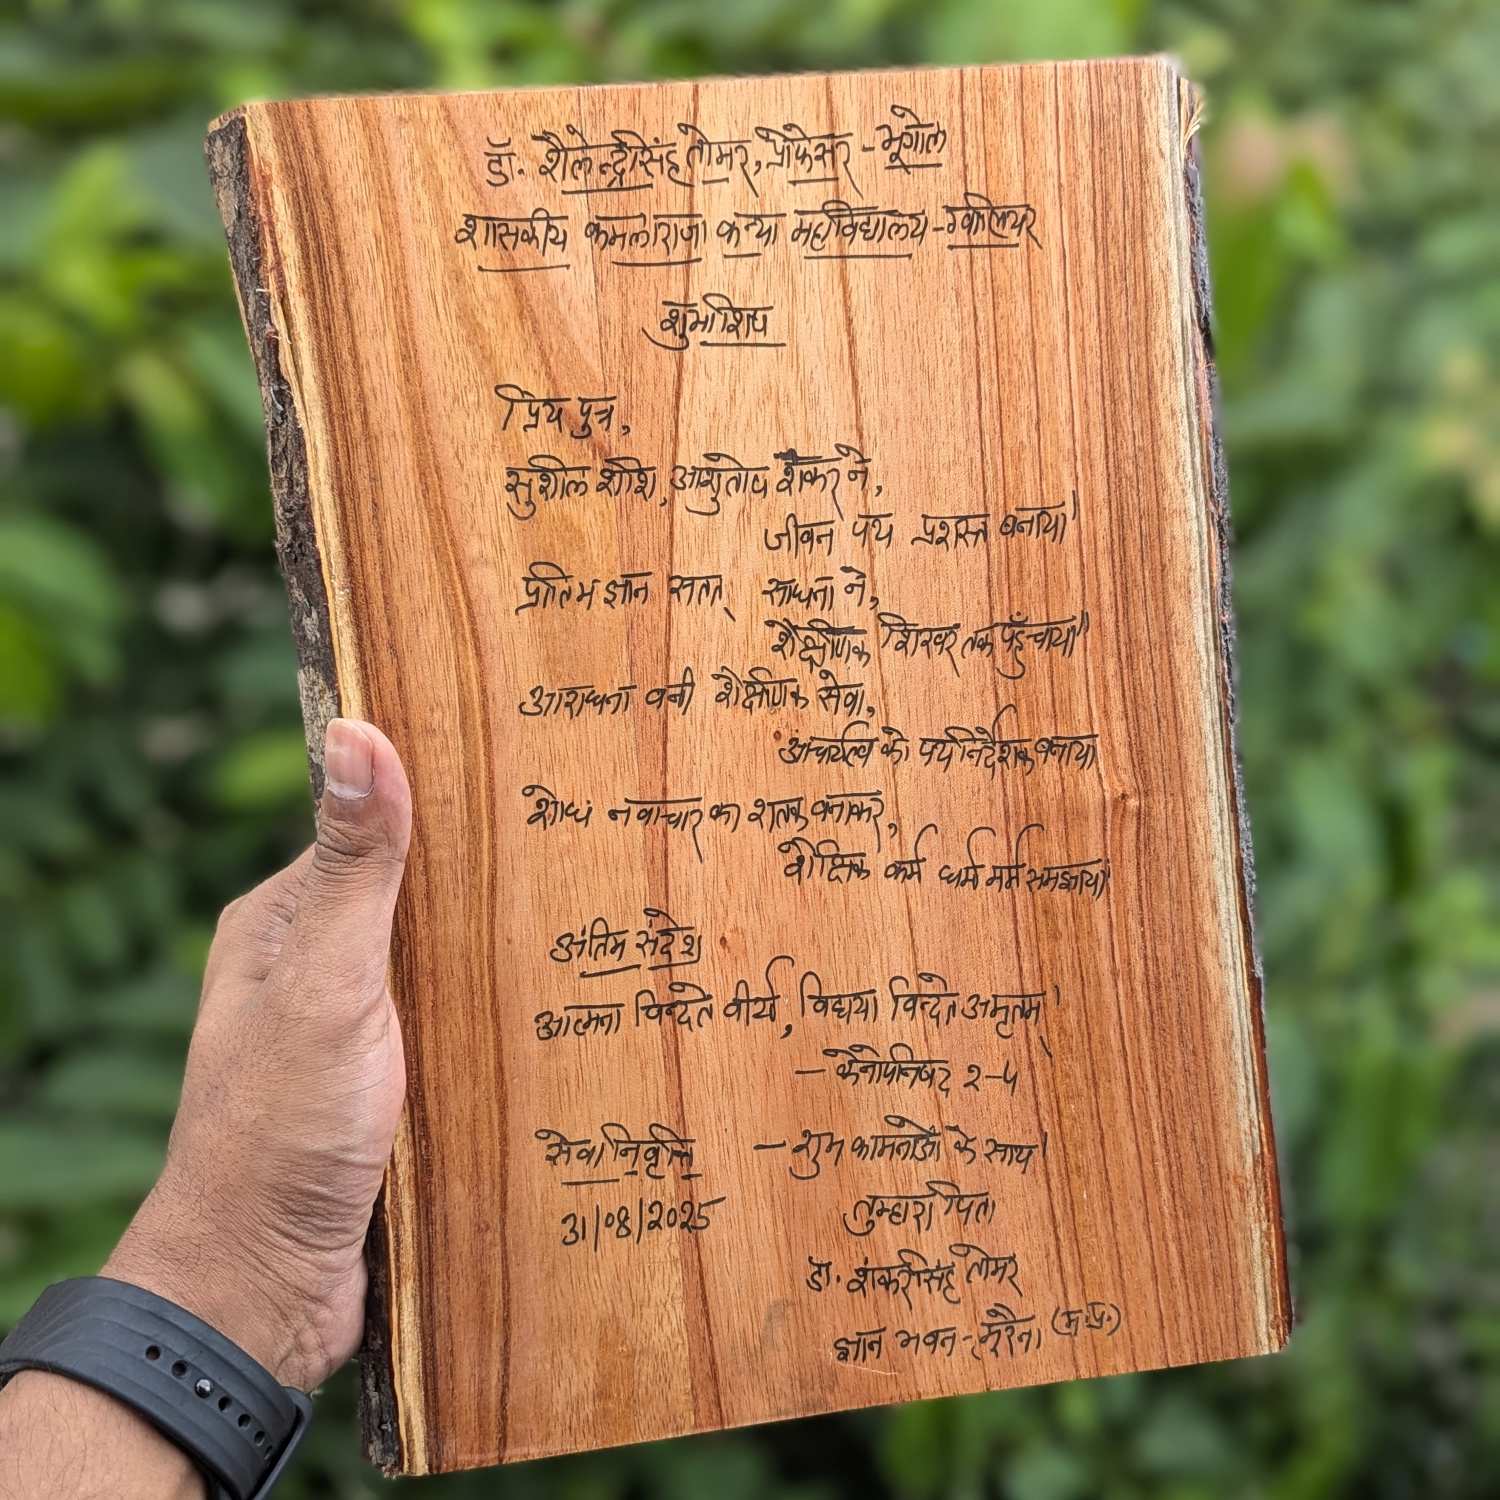 डॉ. शैलेन्द्रसिंह तोमर, प्रोफेसर - भूगोल
शासकीय कमलाराजा कन्या महाविद्यालय - ग्वालियर
शुभाशिष
प्रिय पुत्र,
सुशील शशि, आशुतोष शंकर ने,
जीवन पथ प्रशस्त बनाया।
प्रतिभ ज्ञान सतत् साधना ने,
शैक्षणिक शिखर तक पहुँचाया॥
आराधना बनी शैक्षणिक सेवा,
आचार्यत्व को पथ निर्देशक बनाया
शोध नवाचार का बनाकर,
शैक्षिक कर्म धर्म मर्म समझाया।
अंतिम संदेश
आत्मना विन्दते वीर्यं, विद्यया विन्दते अमृतम्।
- केनोपनिषद २-५
सेवा निवृत्ति - शुभ कामनाओं के साथ।
31/08/2025 तुम्हारा पिता
डा. शंकरसिंह तोमर
ज्ञान भवन - मुरैना (म.प्र.)